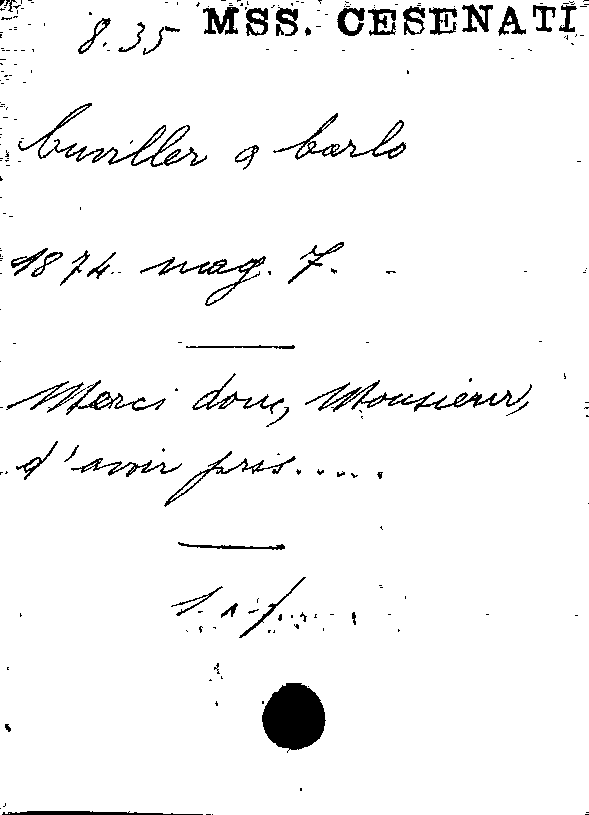 8.35 MSS. CESENATI
Cuviller a Carlo
1874 mag. 7.
Merci donc, Monsieur,
d'avoir pris.....